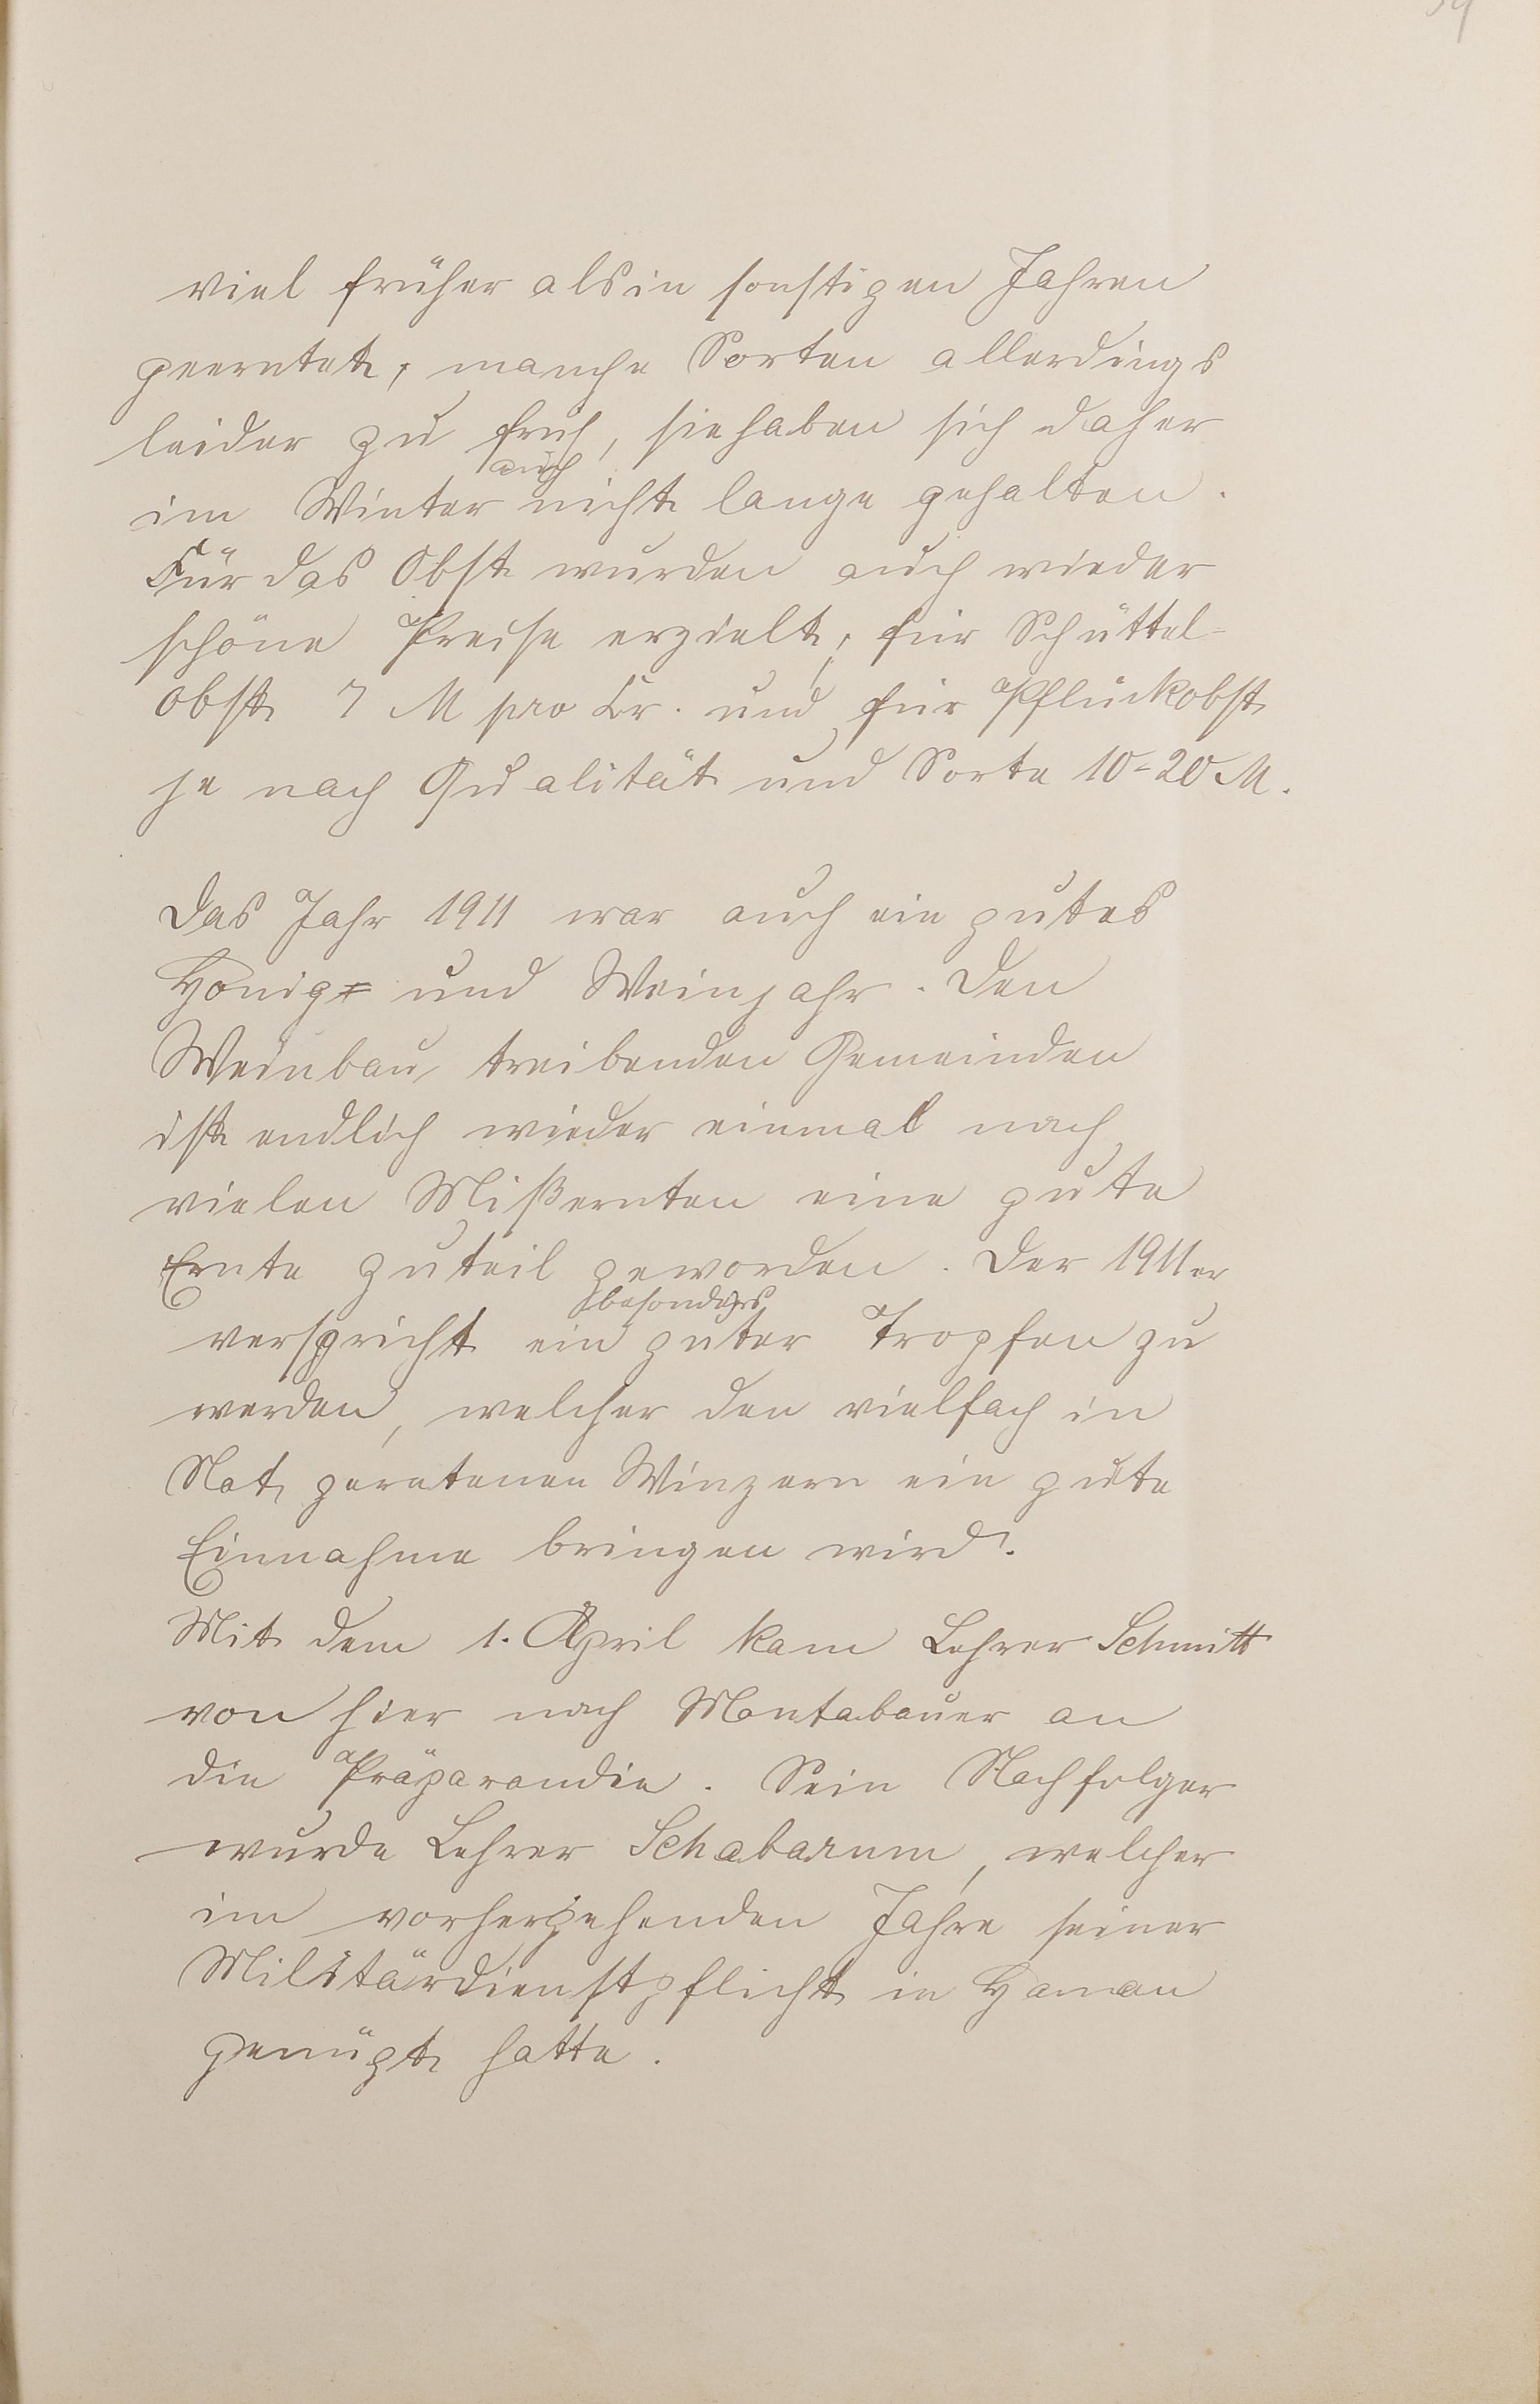 viel früher als in sonstigen Jahren
geerntet, manche Sorten allerdings
leider zu früh, sie haben sich daher
auch
im Winter nicht lange gehalten.
Für das Obst wurden auch wieder
schöne Preise erzielt, für Schüttel-
obst 7 M pro Ctr. und für Pflückobst
je nach Qualität und Sorte 10-20 M.
Das Jahr 1911 war auch ein gutes
Honig= und Weinjahr. Den
Weinbau treibenden Gemeinden
ist endlich wieder einmal nach
vielen Mißernten eine gute
Ernte zuteil geworden. Der 1911er
besonders
verspricht ein guter Tropfen zu
werden, welcher den vielfach in
Not geratenen Winzern ein gute
Einnahme bringen wird.
Mit dem 1. April kam Lehrer Schmitt
von hier nach Montabauer an
die Präparandie. Sein Nachfolger
wurde Lehrer Schabarum, welcher
im vorhergehenden Jahre seiner
Militärdienstpflicht in Hanau
genügt hatte.